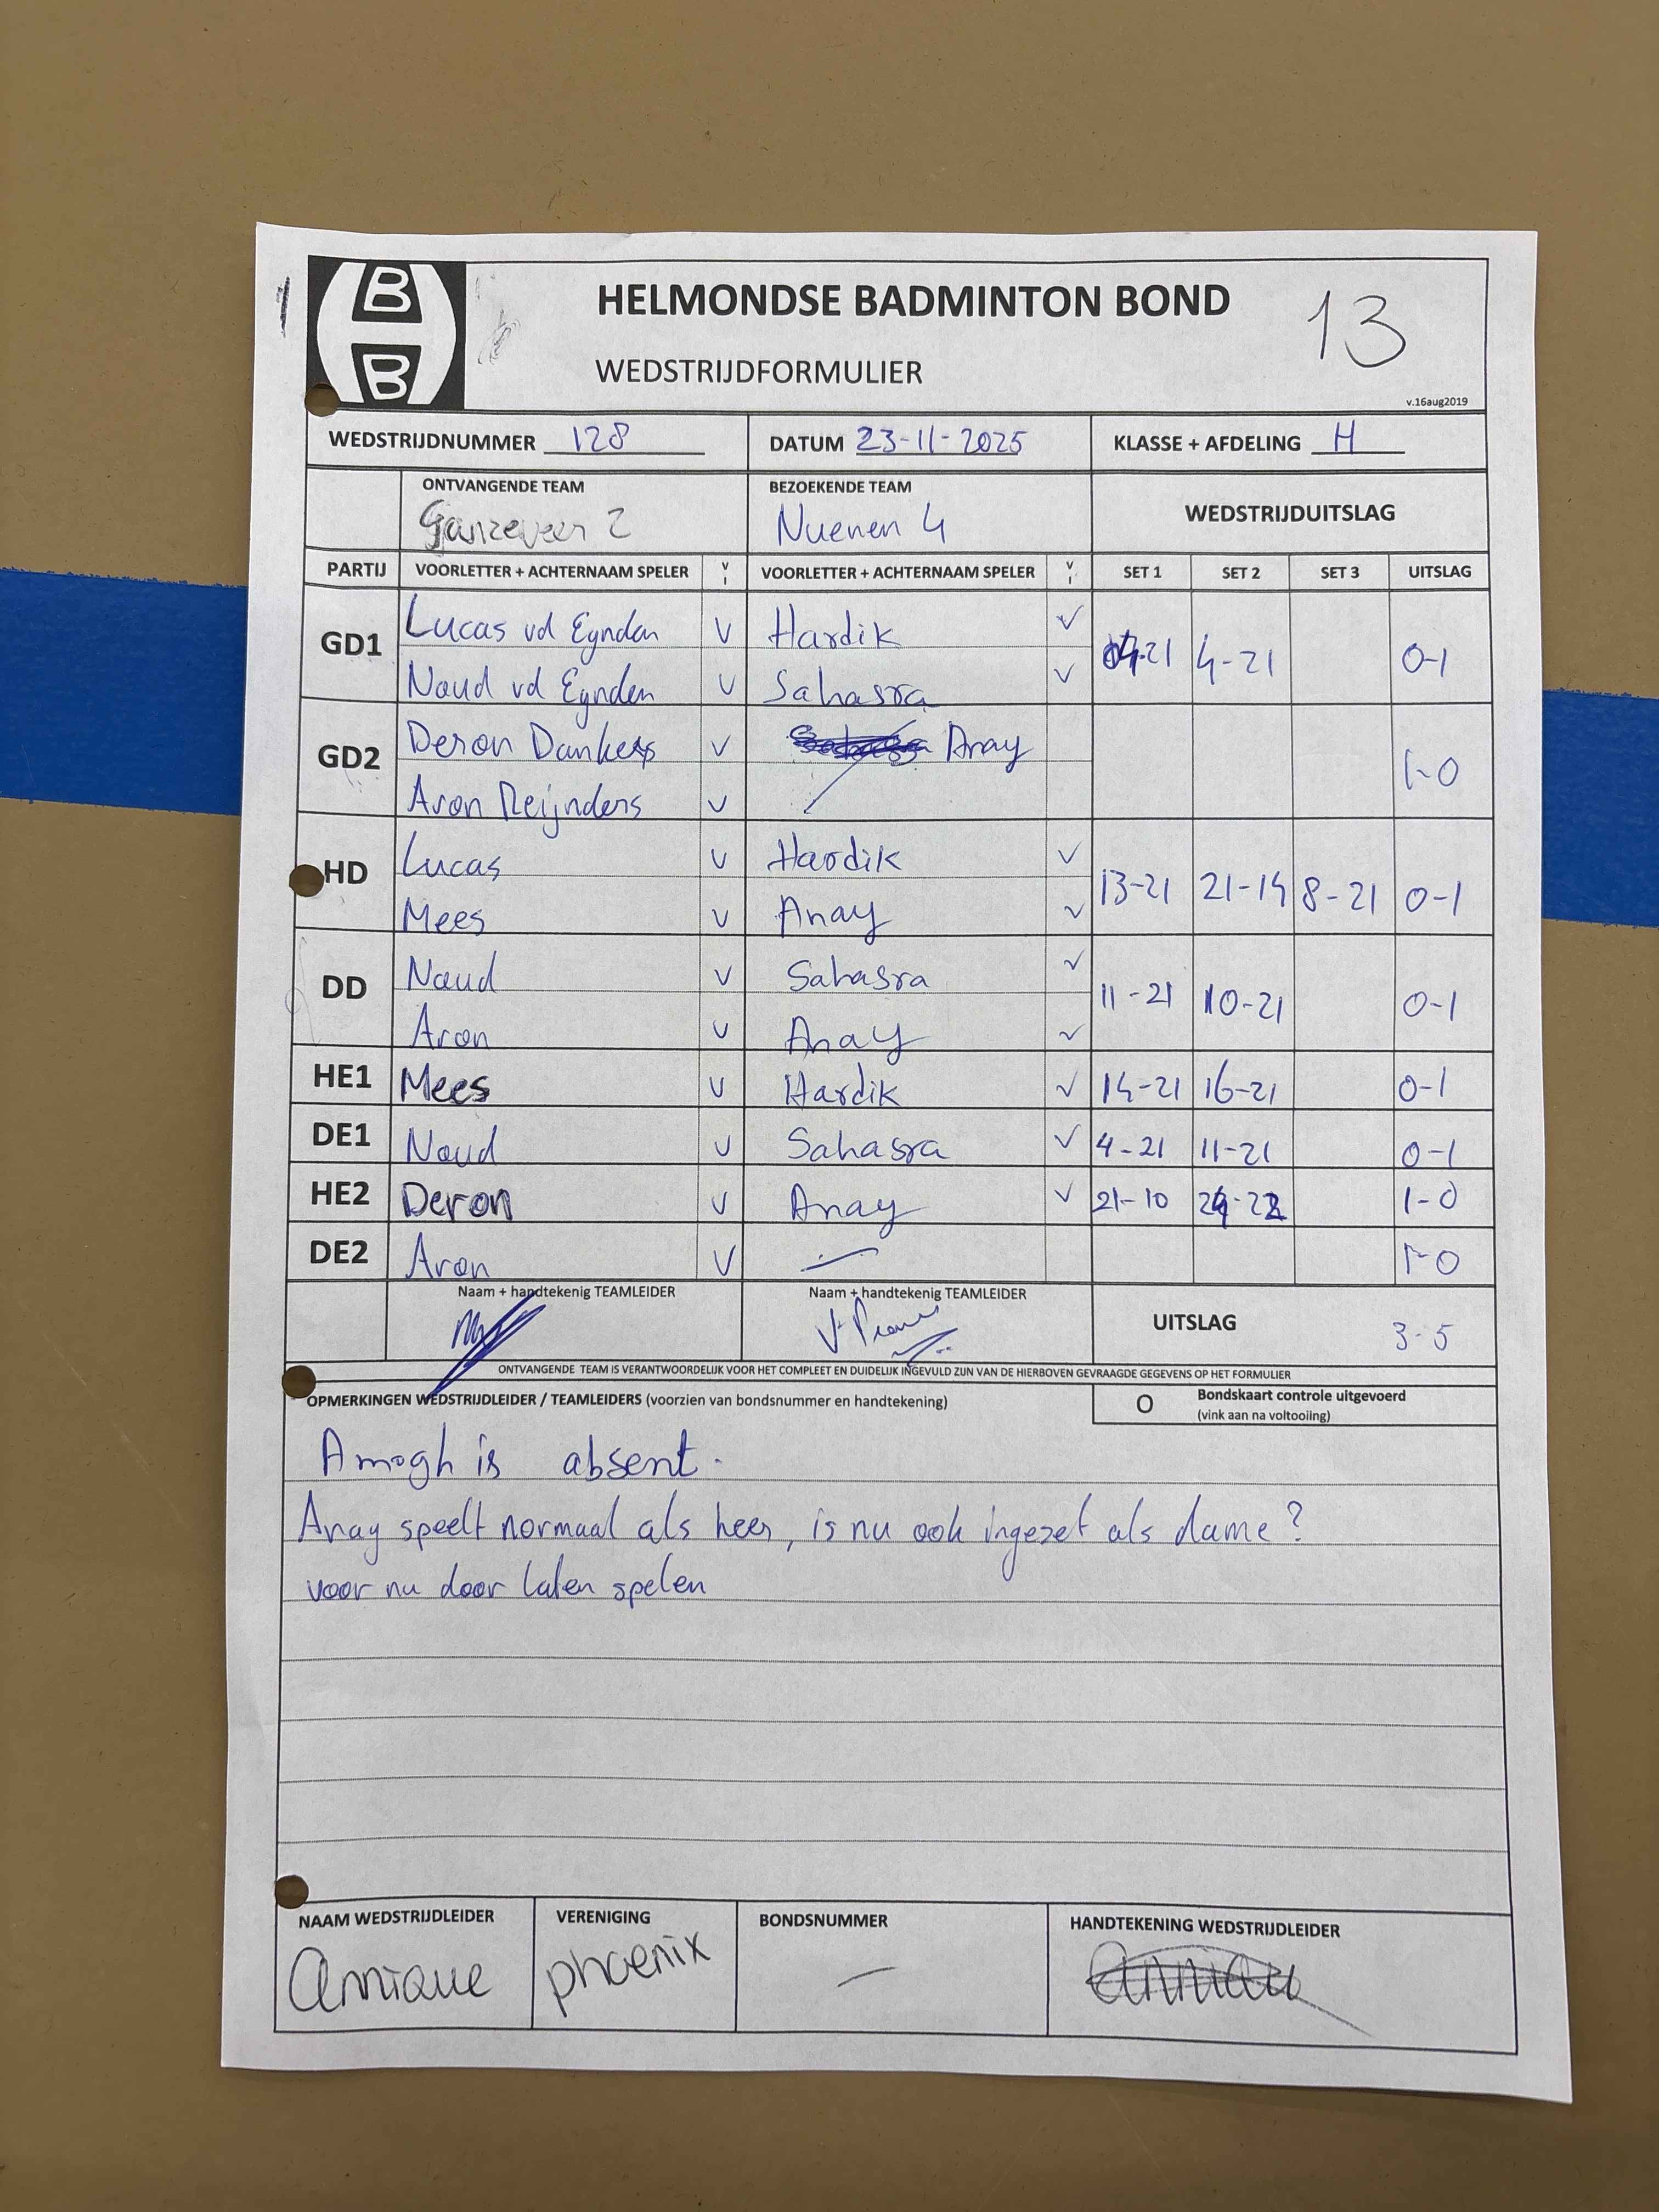 B
B
HELMONDSE BADMINTON BOND
13
WEDSTRIJDFORMULIER
v.16aug2019
WEDSTRIJDNUMMER 128 DATUM 23-11-2025 KLASSE + AFDELING H
ONTVANGENDE TEAM BEZOEKENDE TEAM WEDSTRIJDUITSLAG
Ganzeveer 2 Nuenen 4
PARTIJ VOORLETTER + ACHTERNAAM SPELER V I VOORLETTER + ACHTERNAAM SPELER V I SET 1 SET 2 SET 3 UITSLAG
GD1 Lucas vd Eynden V Hardik √ 21 4-21 0-1
Noud vd Eynden V Sahasra √
GD2 Deron Dankers V Anay 1-0
Aron Reijnders V /
HD Lucas V Hardik √ 13-21 21-14 8-21 0-1
Mees V Anay √
DD Noud V Sahasra √ 11-21 10-21 0-1
Aron V Anay √
HE1 Mees V Hardik √ 14-21 16-21 0-1
DE1 Noud V Sahasra √ 4-21 11-21 0-1
HE2 Deron V Anay √ 21-10 24-22 1-0
DE2 Aron V — 1-0
Naam + handtekenig TEAMLEIDER Naam + handtekenig TEAMLEIDER
UITSLAG 3-5
ONTVANGENDE TEAM IS VERANTWOORDELIJK VOOR HET COMPLEET EN DUIDELIJK INGEVULD ZIJN VAN DE HIERBOVEN GEVRAAGDE GEGEVENS OP HET FORMULIER
OPMERKINGEN WEDSTRIJDLEIDER / TEAMLEIDERS (voorzien van bondsnummer en handtekening) O Bondskaart controle uitgevoerd
(vink aan na voltooiing)
Amogh is absent.
Anay speelt normaal als heer, is nu ook ingezet als dame?
voor nu door laten spelen
NAAM WEDSTRIJDLEIDER VERENIGING BONDSNUMMER HANDTEKENING WEDSTRIJDLEIDER
Annique phoenix —